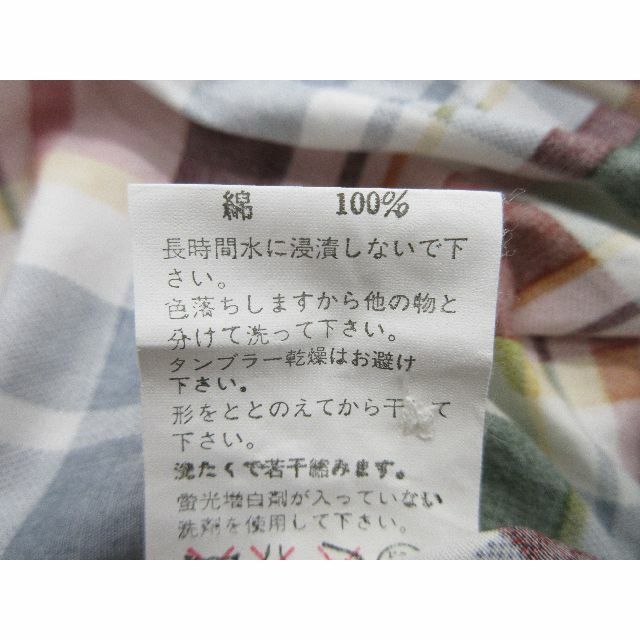 綿 100%
長時間水に浸漬しないで下
さい。
色落ちしますから他の物と
分けて洗って下さい。
タンブラー乾燥はお避け
下さい。
形をととのえてから干して
下さい。
洗たくで若干縮みます。
蛍光増白剤が入っていない
洗剤を使用して下さい。